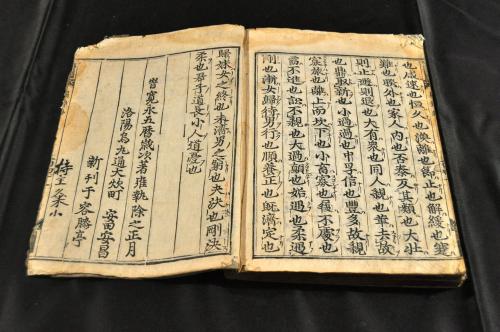 也咸速也恒久也渙離也節止也解緩也蹇
難也睽外也家人内也否泰反其類也大壮
則止遯則退也大有衆也同人親也革去故
也鼎取新也小過過也中孚信也豊多故親
寡旅也離上而坎下也小畜寡也履不處也
需不進也訟不親也大過顛也姤遇也柔遇
剛也漸女歸待男行也頤養正也既濟定也
歸妹女之終也未濟男之窮也夬決也剛決
柔也君子道長小人道憂也
旹寛永五暦歳次著雍執除之正月
洛陽烏丸通大炊町
安田安昌
新刊于容膝亭